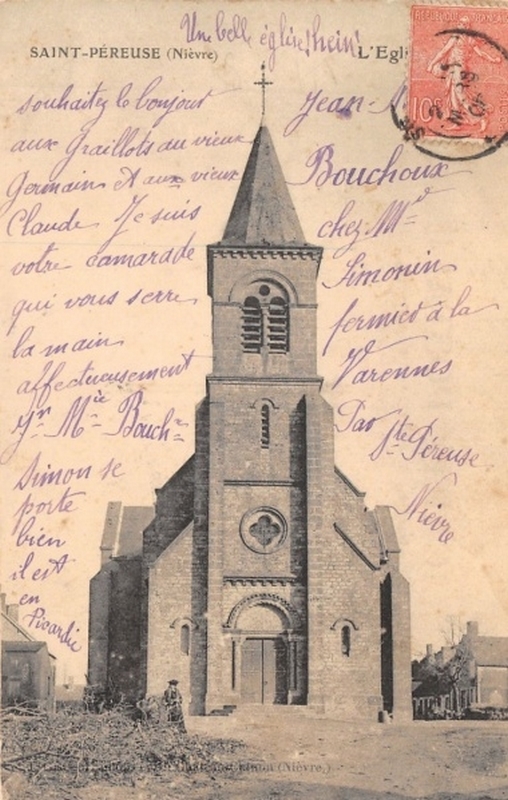 Une belle église hein
SAINT-PÉREUSE (Nièvre)
L'Egli
REPUBLIQUE FRANÇAISE
10
souhaitez le bonjour
aux Graillots au vieux
Germain et aux vieux
Claude Je suis
votre camarade
qui vous serre
la main
affectueusement
Jn Mie Bouch
Simon se
porte
bien
il est
en
Picardie
Jean-
Bouchoux
chez Mr
Simonin
fermier à la
Varennes
Par
Ste Péreuse
Nièvre
(Nièvre)